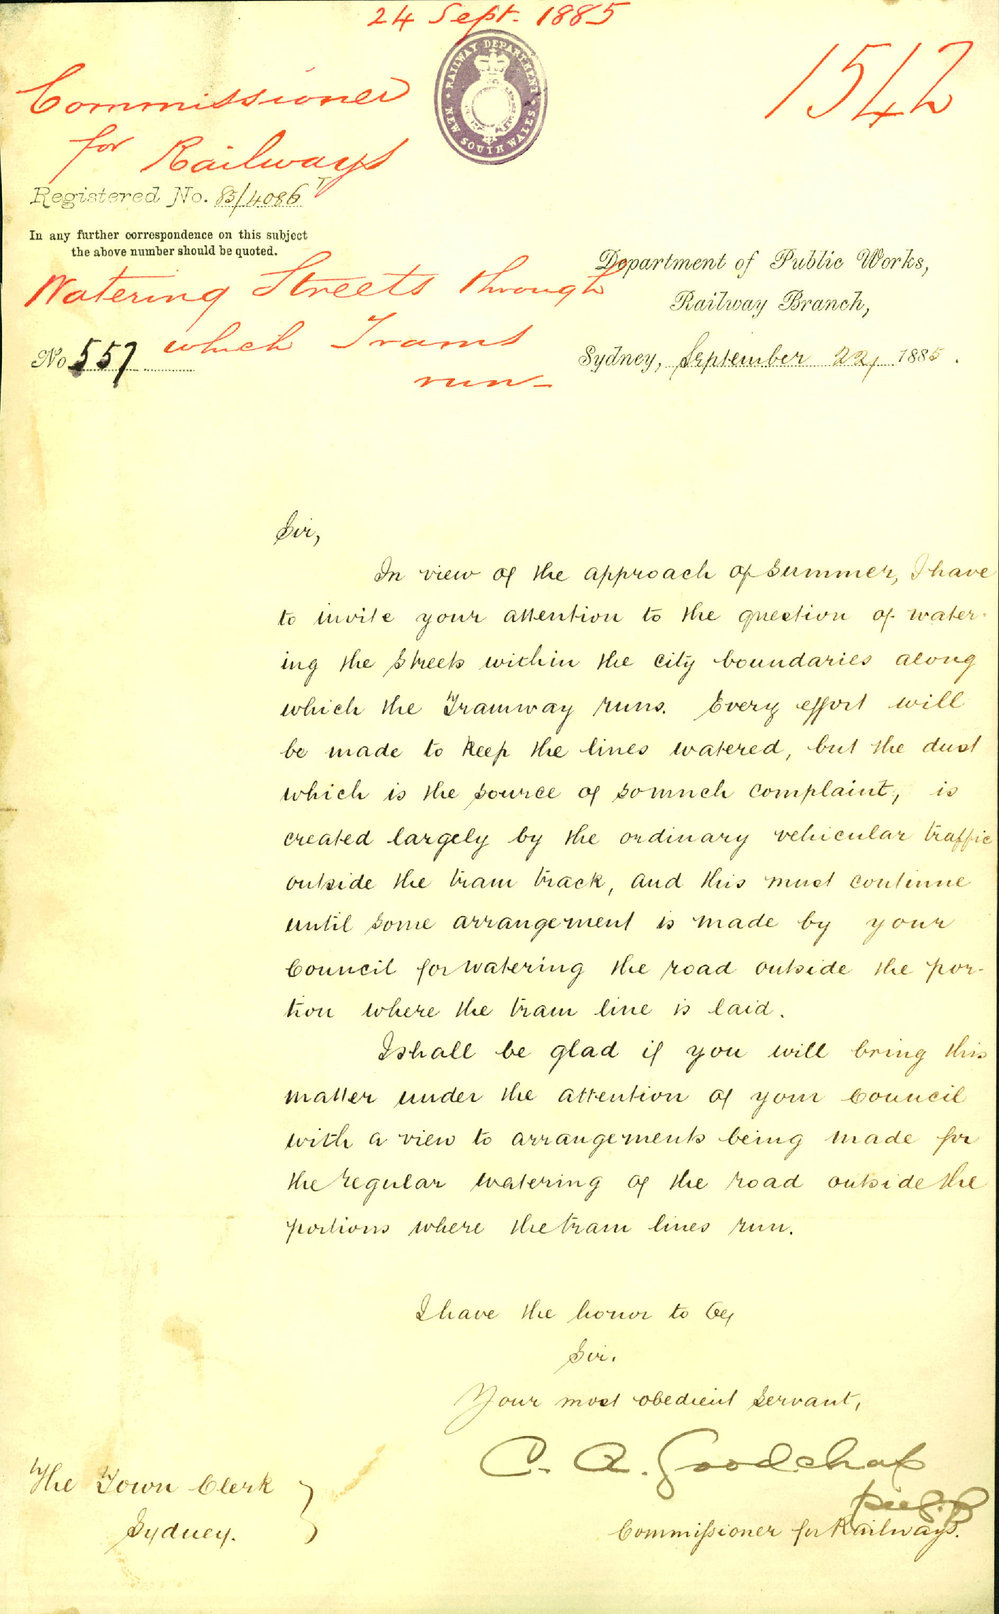 24 Sept. 1885
RAILWAY DEPARTMENT
NEW SOUTH WALES
1542
Commissioner
for Railways
Registered No. 85/4086 T
In any further correspondence on this subject
the above number should be quoted.
Watering Streets through
which Trams
run-
No 557
Department of Public Works,
Railway Branch,
Sydney, September 22, 1885.
Sir,
In view of the approach of summer, I have
to invite your attention to the question of water-
ing the streets within the city boundaries along
which the Tramway runs. Every effort will
be made to keep the lines watered, but the dust
which is the source of so much complaint, is
created largely by the ordinary vehicular traffic
outside the tram track, and this must continue
until some arrangement is made by your
Council for watering the road outside the por-
tion where the tram line is laid.
I shall be glad if you will bring this
matter under the attention of your Council
with a view to arrangements being made for
the regular watering of the road outside the
portions where the tram lines run.
I have the honor to be,
Sir.
Your most obedient servant,
C. A. Goodchap
Commissioner for Railways.
The Town Clerk
Sydney.